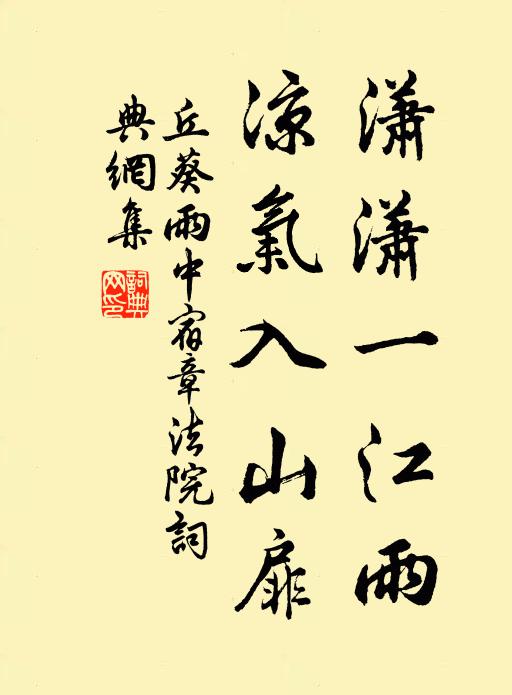 瀟瀟一江雨
凉氣入山扉
丘葵雨中宿章法院詞
典網集
詞典網印